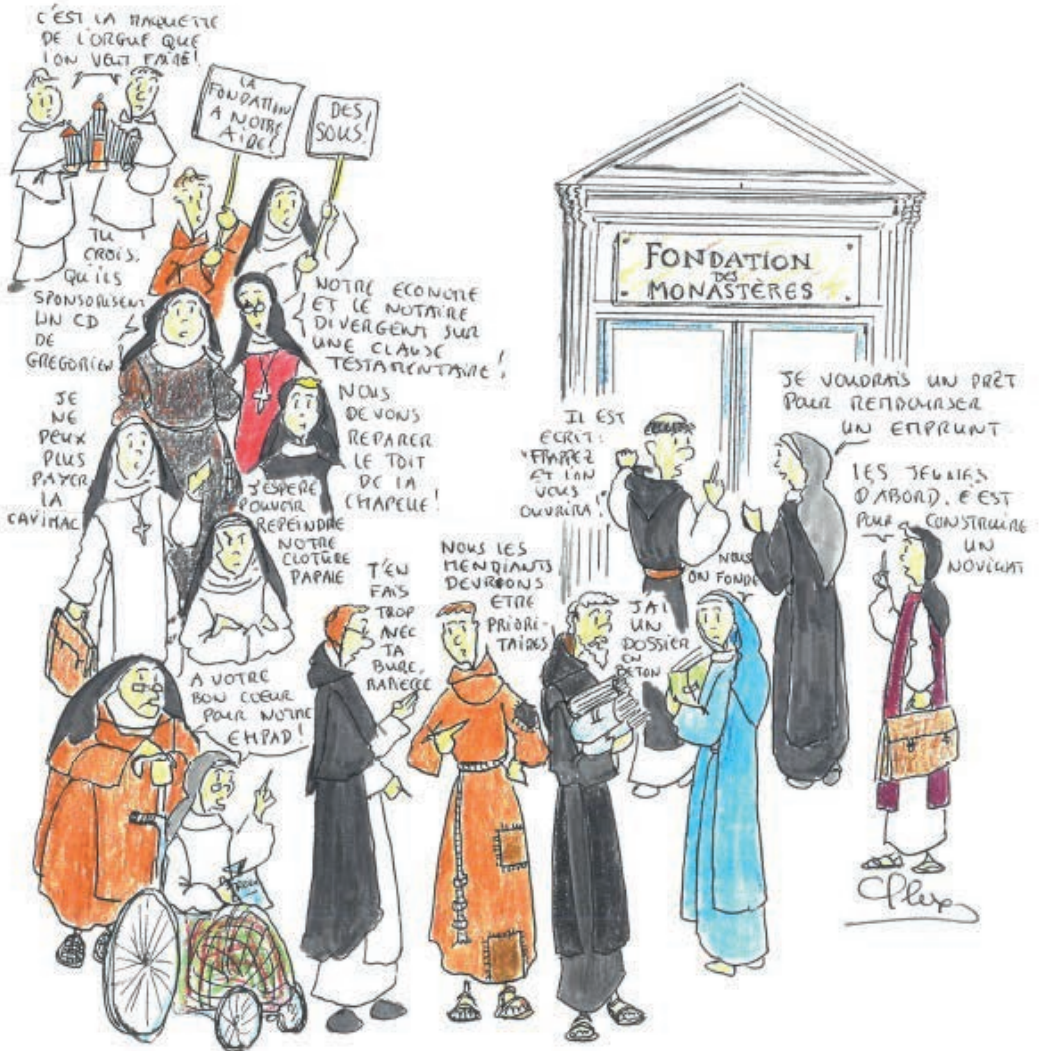 C'EST LA MAQUETTE
DE L'ORGUE QUE
L'ON VEUT FAIRE!
LA
FONDATION
A NOTRE
AIDE!
DES
SOUS!
TU
CROIS
QU'ILS
SPONSORISENT
UN CD
DE
GREGORIEN?
NOTRE ECONOME
ET LE NOTAIRE
DIVERGENT SUR
UNE CLAUSE
TESTAMENTAIRE!
JE
NE
PEUX
PLUS
PAYER
LA
CAVIMAC
NOUS
DEVONS
REPARER
LE TOIT
DE LA
CHAPELLE!
J'ESPERE
POUVOIR
REPEINDRE
NOTRE
CLOTURE
PAPALE
A VOTRE
BON COEUR
POUR NOTRE
EMPAD!
T'EN
FAIS
TROP
AVEC
TA
BURE
RAPIECEE
NOUS LES
MENDIANTS
DEVRIONS
ETRE
PRIORI-
TAIRES
J'AI
UN
DOSSIER
EN
BETON
NOUS
ON FONDE
FONDATION
DES
MONASTÈRES
IL EST
ECRIT:
"FRAPPEZ
ET L'ON
VOUS
OUVRIRA!"
JE VOUDRAIS UN PRÊT
POUR REMBOURSER
UN EMPRUNT
LES JEUNES
D'ABORD. C'EST
POUR CONSTRUIRE
UN
NOVICIAT